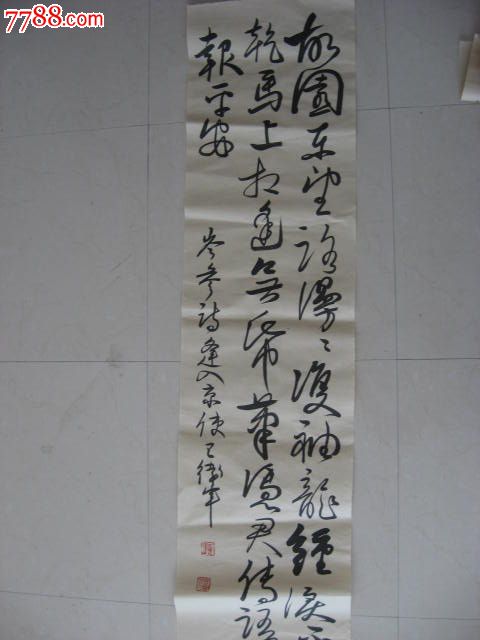 7788.com
故園东望路漫〻雙袖龍鍾淚不
乾馬上相逢無紙筆憑君傳語
報平安
岑參詩逢入京使